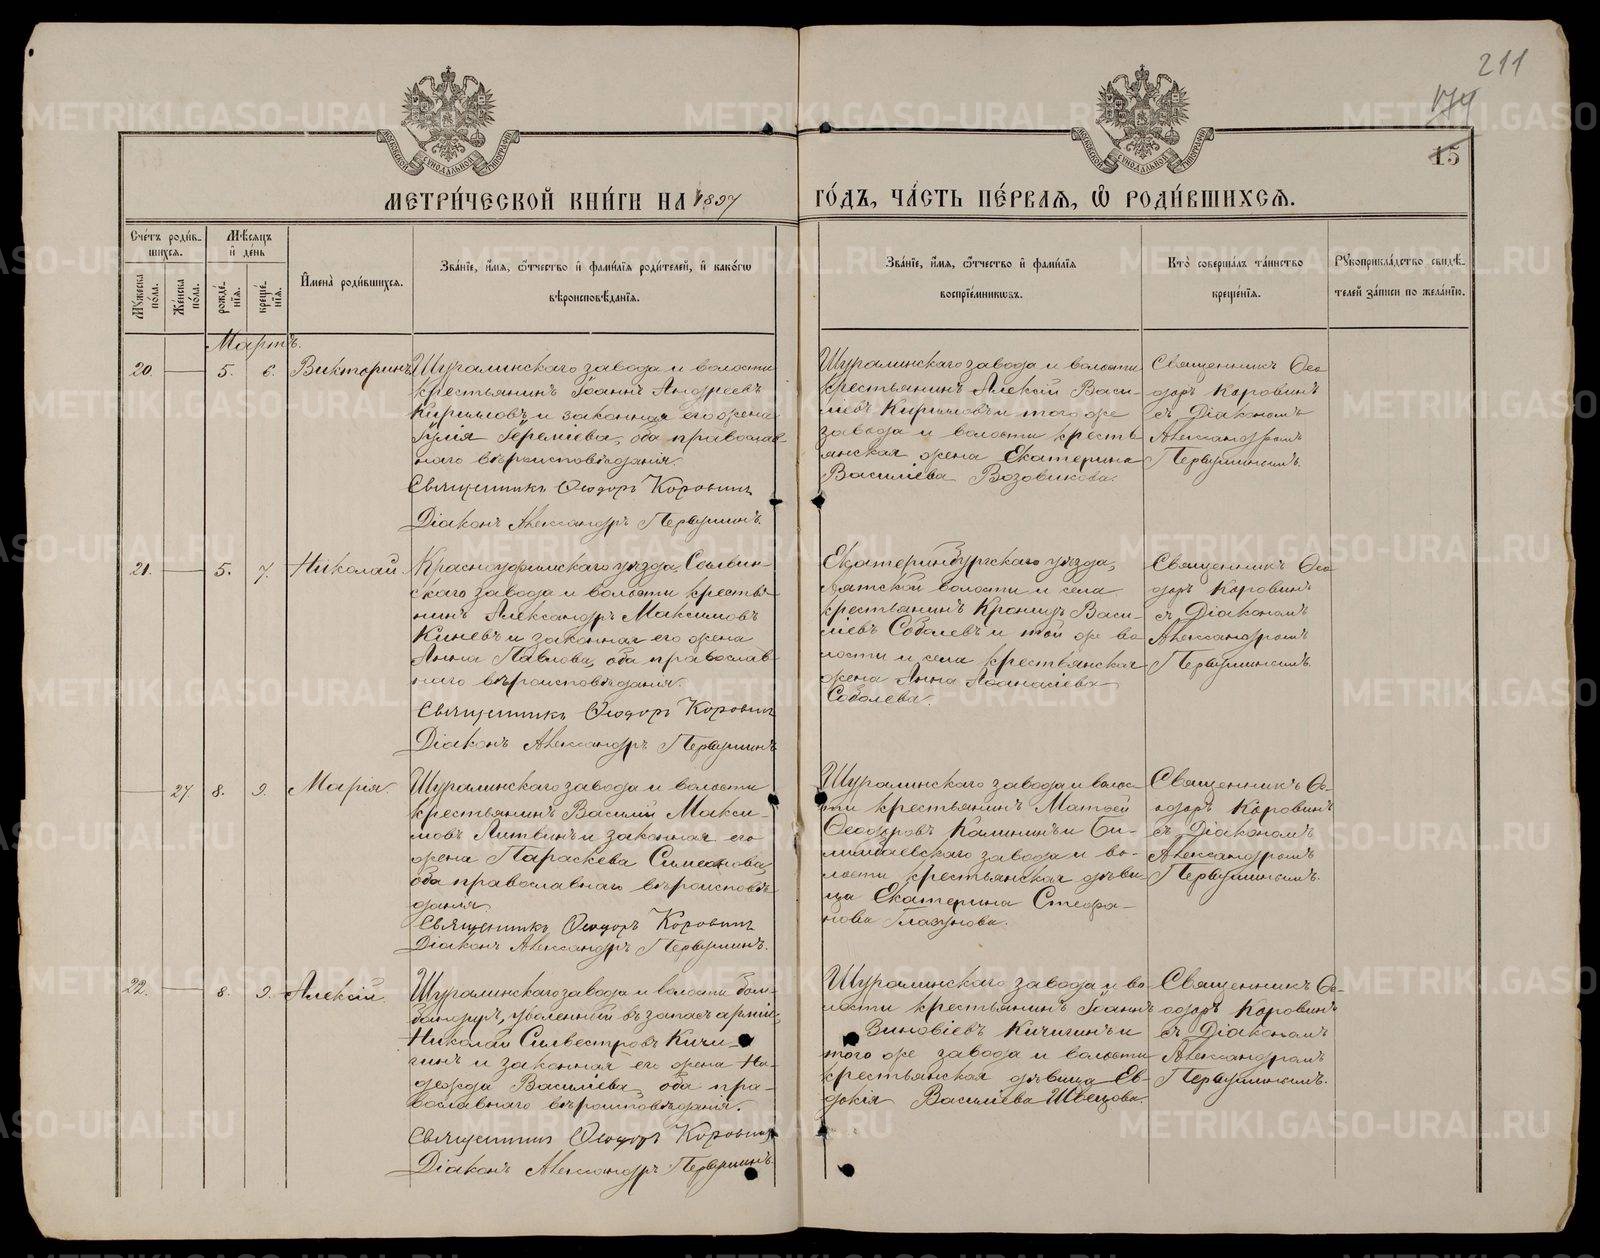 211
174
15
МЕТРИ́ЧЕСКОЙ КНИ́ГИ НА 1897 ГО́ДЪ, ЧА́СТЬ ПЕ́РВАѦ, Ѡ РОДИ́ВШИХСѦ.
Сче́тъ роди́вшихсѧ.
Мꙋ́жеска по́ла.
Же́нска по́ла.
Мѣ́сѧцъ и де́нь
рожде́нїѧ.
креще́нїѧ.
Имена̀ роди́вшихсѧ.
Зва́нїе, и́мѧ, ѻ́тчество и фами́лїѧ роди́телей, и како́гѡ
вѣроисповѣ́данїѧ.
Зва́нїе, и́мѧ, ѻ́тчество и фами́лїѧ
воспрїе́мникѡвъ.
Кто̀ соверша́лъ та́инство
креще́нїѧ.
Рꙋкоприкла́дство свидѣ́-
телей за́писи по жела́нїю.
Мартъ.
20.
5. 6.
Викторинъ
Шуралинскаго завода и волости
крестьянинъ Іоаннъ Андреевъ
Кирилловъ и законная его жена
Іулія Іереміева, оба православ-
наго вѣроисповѣданія.
Священникъ Ѳеодоръ Коровинъ
Діаконъ Александръ Первушинъ.
Шуралинскаго завода и волости
крестьянинъ Алексій Васи-
ліевъ Кирилловъ и того же
завода и волости кресть-
янская жена Екатерина
Василіева Возовикова.
Священникъ Ѳео-
доръ Коровинъ
съ Діакономъ
Александромъ
Первушинымъ.
21.
5. 7.
Николай
Красноуфимскаго уѣзда, Сылвин-
скаго завода и волости кресть-
нинъ Александръ Максимовъ
Киневъ и законная его жена
Анна Павлова, оба православ-
наго вѣроисповѣданія.
Священникъ Ѳеодоръ Коровинъ
Діаконъ Александръ Первушинъ
Екатеринбургскаго уѣзда,
Аятской волости и села
крестьянинъ Кронидъ Васи-
ліевъ Соболевъ и той же во-
лости и села крестьянская
жена Анна Аѳанасіева
Соболева.
Священникъ Ѳео-
доръ Коровинъ
съ Діакономъ
Александромъ
Первушинымъ.
27.
8. 9.
Марія.
Шуралинскаго завода и волости
крестьянинъ Василій Макси-
мовъ Литвинъ и законная его
жена Параскева Симеонова,
оба православнаго вѣроисповѣ-
данія
Священникъ Ѳеодоръ Коровинъ
Діаконъ Александръ Первушинъ.
Шуралинскаго завода и волос-
ти крестьянинъ Матѳей
Ѳеодоровъ Калининъ и Би-
лимбаевскаго завода и во-
лости крестьянская дѣви-
ца Екатерина Стефа-
нова Глазунова.
Священникъ Ѳе-
одоръ Коровинъ
съ Діакономъ
Александромъ
Первушинымъ.
22.
8. 9.
Алексій
Шуралинскаго завода и волости бом-
бандиръ, уволенный въ запасъ арміи,
Николай Силвестровъ Кичи-
гинъ и законная его жена На-
дежда Василіева, оба пра-
вославнаго вѣроисповѣданія.
Священникъ Ѳеодоръ Коровинъ
Діаконъ Александръ Первушинъ
Шуралинскаго завода и во-
лости крестьянинъ Іоаннъ
Зиновіевъ Кичигинъ и
того же завода и волости
крестьянская дѣвица Ев-
докія Василіева Швецова.
Священникъ Ѳе-
одоръ Коровинъ
съ Діакономъ
Александромъ
Первушинымъ.
METRIKI.GASO-URAL.RU